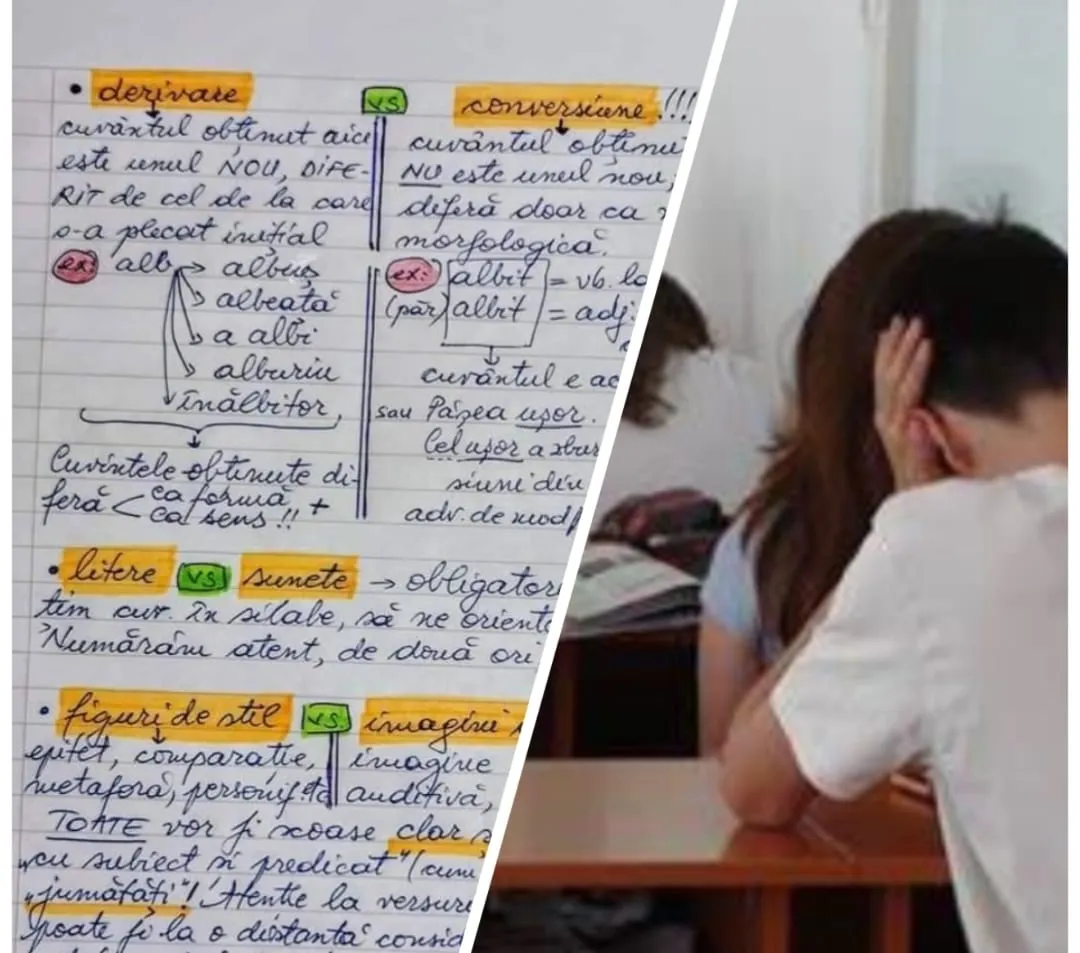 • derivare
cuvântul obținut aici
este unul NOU, DIFE-
RIT de cel de la care
s-a plecat inițial
ex: alb → albuș
albeață
a albi
alburiu
înălbitor,
Cuvintele obținute di-
feră < ca formă +
ca sens !!
vs
conversiune !!!
cuvântul obținu
NU este unul nou,
diferă doar ca
morfologică.
ex: albit = vb. la
(păr) albit = adj.
cuvântul e ac
sau Părea ușor.
Cel ușor a zbur
siuni din
adv. de mod
• litere vs sunete → obligator
țim cuv. în silabe, să ne orient
Numărăm atent, de două ori
• figuri de stil vs. imagini
epitet, comparație,
metaforă,
imagine
auditivă,
TOATE vor fi scoase clar s
„cu subiect și predicat" (cum
„jumătăți"! Atenție la versur
poate fi la o distanță consid